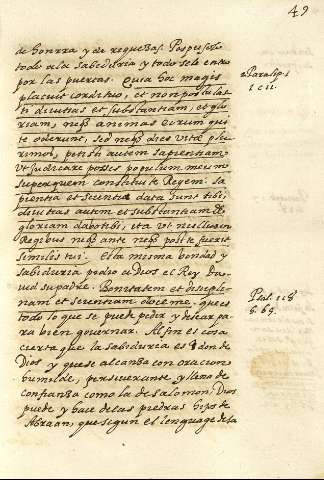 49
de honrra y de requezas. Pospuso lo
todo a la sabeduria y todo se le entro
por las puertas. Quia hoc magis
placuit cordi tuo, et non postulas
ti divitias et substantiam, et glo
riam, neq3 animas eorum qui
te oderunt, sed neq3 dies vitæ plu
rimos, petisti autem sapientiam,
vt judicare posses populum meum
super quem constitui te Regem. Sa
pientia et scientia data sunt tibi;
divitias autem et substantiam et
gloriam dabo tibi, ita vt nullus in
Regibus neq3 ante neq3 post te fuerit
similis tui. Esta misma bondad y
sabiduria pedio a Dios el Rey Da
vid su padre. Bonitatem et discipli
nam et scientiam doce me, que es
todo lo que se puede pedir y desear pa
ra bien governar. Al fin es cosa
cierta que la sabiduria es don de
Dios y que se alcansa con oracion
humilde, perseverante, y llena de
confiansa como la de Salomon, Dios
puede y hace de las piedras hijos de
Abraan, que segun el lenguage de la
Paralip. 1
1 c 11.
Psal. 118
8. 69.